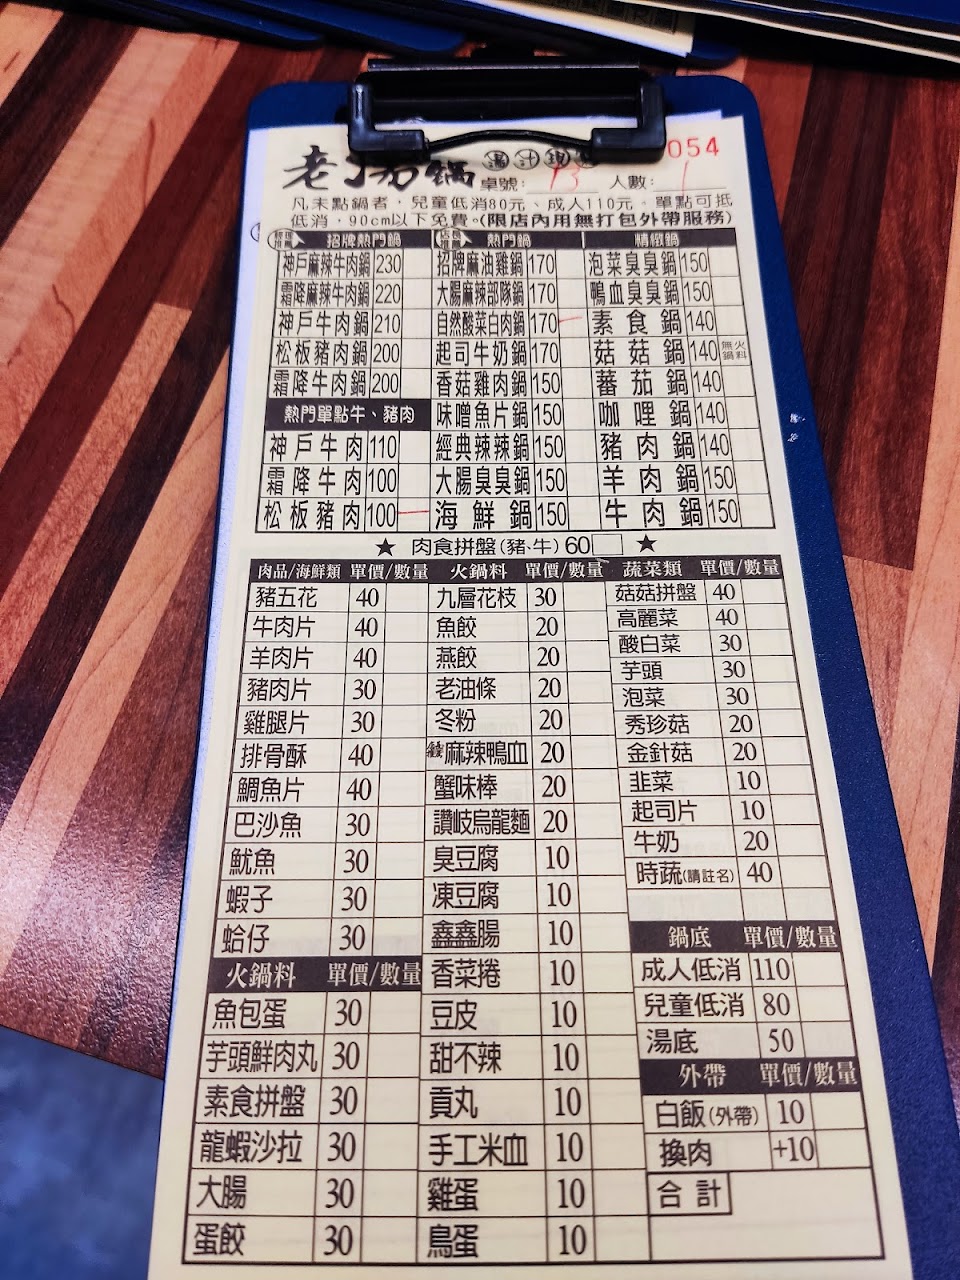 老湯鍋 湯 汁 054
桌號: 13 人數: 1
凡未點鍋者，兒童低消80元、成人110元。單點可抵
低消，90cm以下免費。(限店內用無打包外帶服務)
經理推薦 招牌熱門鍋
神戶麻辣牛肉鍋 230
霜降麻辣牛肉鍋 220
神戶牛肉鍋 210
松板豬肉鍋 200
霜降牛肉鍋 200
熱門單點牛、豬肉
神戶牛肉 110
霜降牛肉 100
松板豬肉 100
店長推薦 熱門鍋
招牌麻油雞鍋 170
大腸麻辣部隊鍋 170
自然酸菜白肉鍋 170
起司牛奶鍋 170
香菇雞肉鍋 150
味噌魚片鍋 150
經典辣辣鍋 150
大腸臭臭鍋 150
海鮮鍋 150
精緻鍋
泡菜臭臭鍋 150
鴨血臭臭鍋 150
素食鍋 140
菇菇鍋 140 無火鍋料
蕃茄鍋 140
咖哩鍋 140
豬肉鍋 140
羊肉鍋 150
牛肉鍋 150
★ 肉食拼盤(豬、牛) 60 ★
肉品/海鮮類 單價/數量
豬五花 40
牛肉片 40
羊肉片 40
豬肉片 30
雞腿片 30
排骨酥 40
鯛魚片 40
巴沙魚 30
魷魚 30
蝦子 30
蛤仔 30
火鍋料 單價/數量
魚包蛋 30
芋頭鮮肉丸 30
素食拼盤 30
龍蝦沙拉 30
大腸 30
蛋餃 30
火鍋料 單價/數量
九層花枝 30
魚餃 20
燕餃 20
老油條 20
冬粉 20
麻辣鴨血 20
蟹味棒 20
讚岐烏龍麵 20
臭豆腐 10
凍豆腐 10
鑫鑫腸 10
香菜捲 10
豆皮 10
甜不辣 10
貢丸 10
手工米血 10
雞蛋 10
鳥蛋 10
蔬菜類 單價/數量
菇菇拼盤 40
高麗菜 40
酸白菜 30
芋頭 30
泡菜 30
秀珍菇 20
金針菇 20
韭菜 10
起司片 10
牛奶 20
時蔬(請註名) 40
鍋底 單價/數量
成人低消 110
兒童低消 80
湯底 50
外帶 單價/數量
白飯(外帶) 10
換肉 +10
合計